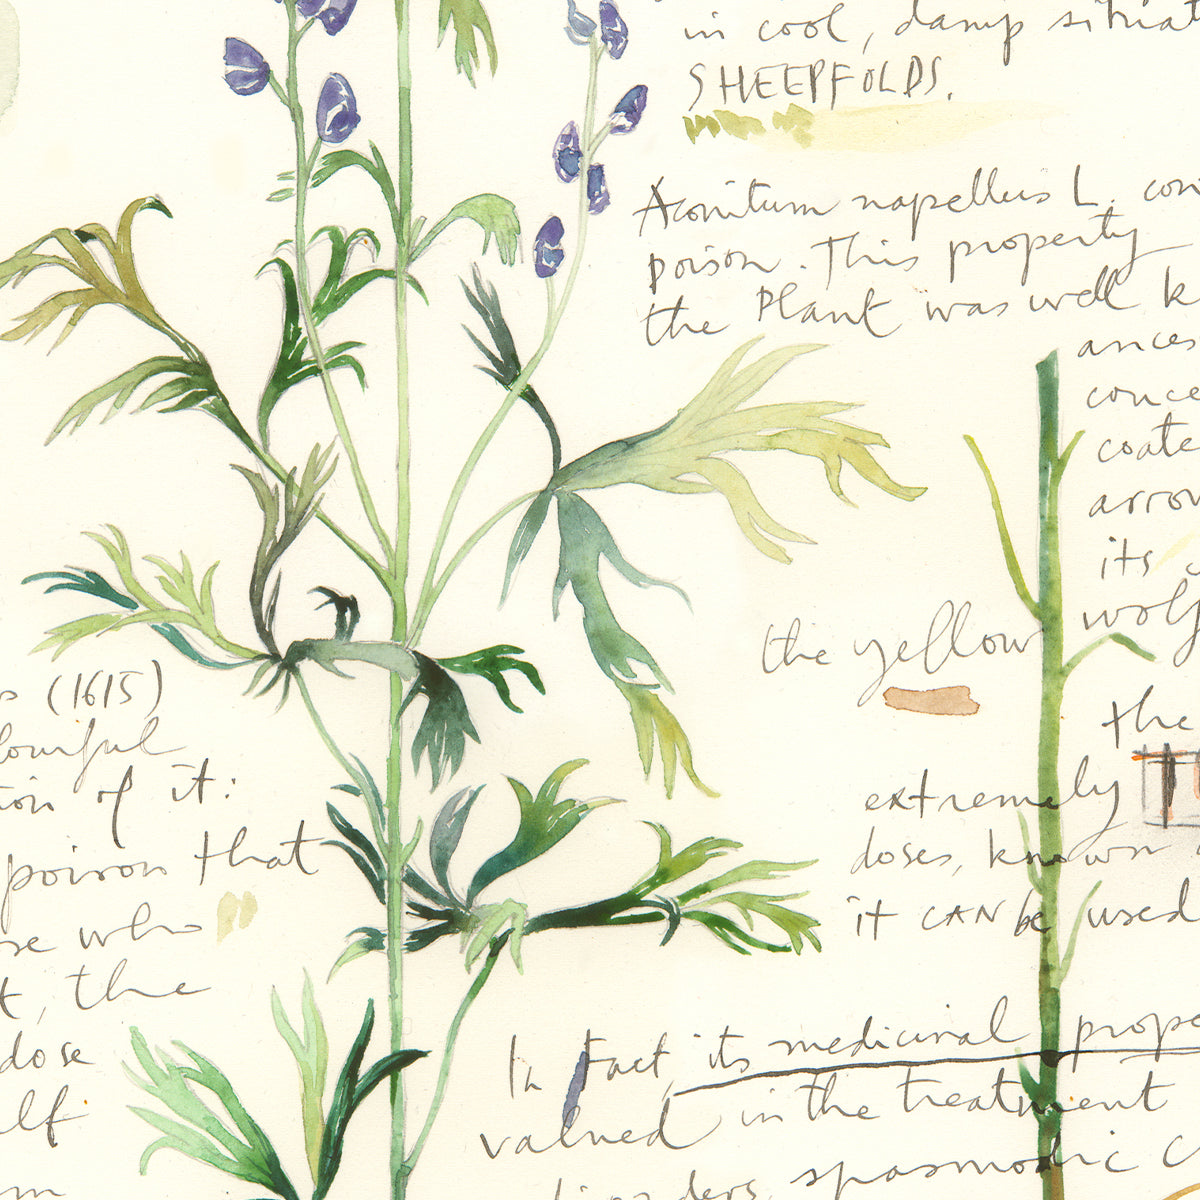 in cool, damp situat
SHEEPFOLDS.
Aconitum napellus L. con
poison. This property
the Plant was well k
ances
conce
coate
arrow
its
wolf
the yellow
the
extremely
doses, known
it CAN be used
In fact its medicinal prope
valued in the treatment
spasmodic C
(1615)
of it:
poison that
se who
t, the
dose
elf
m